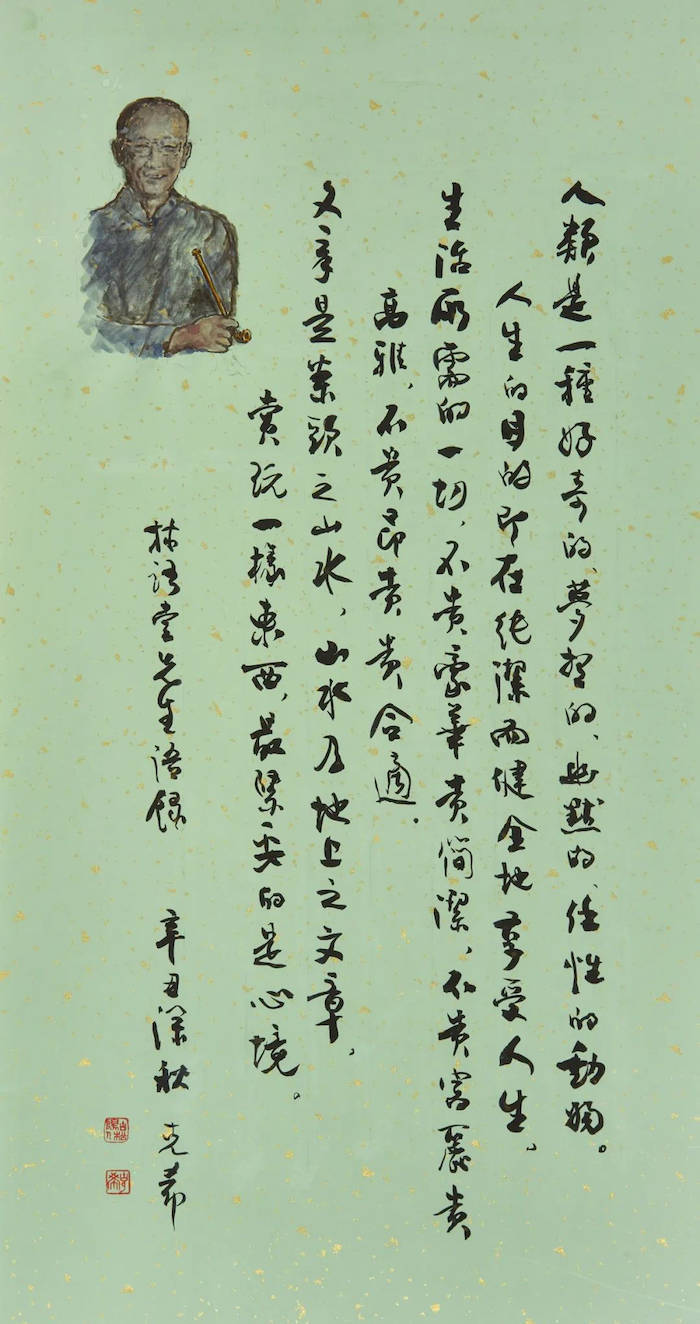 人類是一種好奇的、夢想的、幽默的、任性的動物。
人生的目的即在純潔而健全地享受人生，
生活所需的一切，不貴豪華貴簡潔，不貴富麗貴
高雅，不貴昂貴貴合適．
文章是案頭之山水，山水乃地上之文章，
賞玩一樣東西，最緊要的是心境。
林語堂先生語錄 辛丑深秋 克希